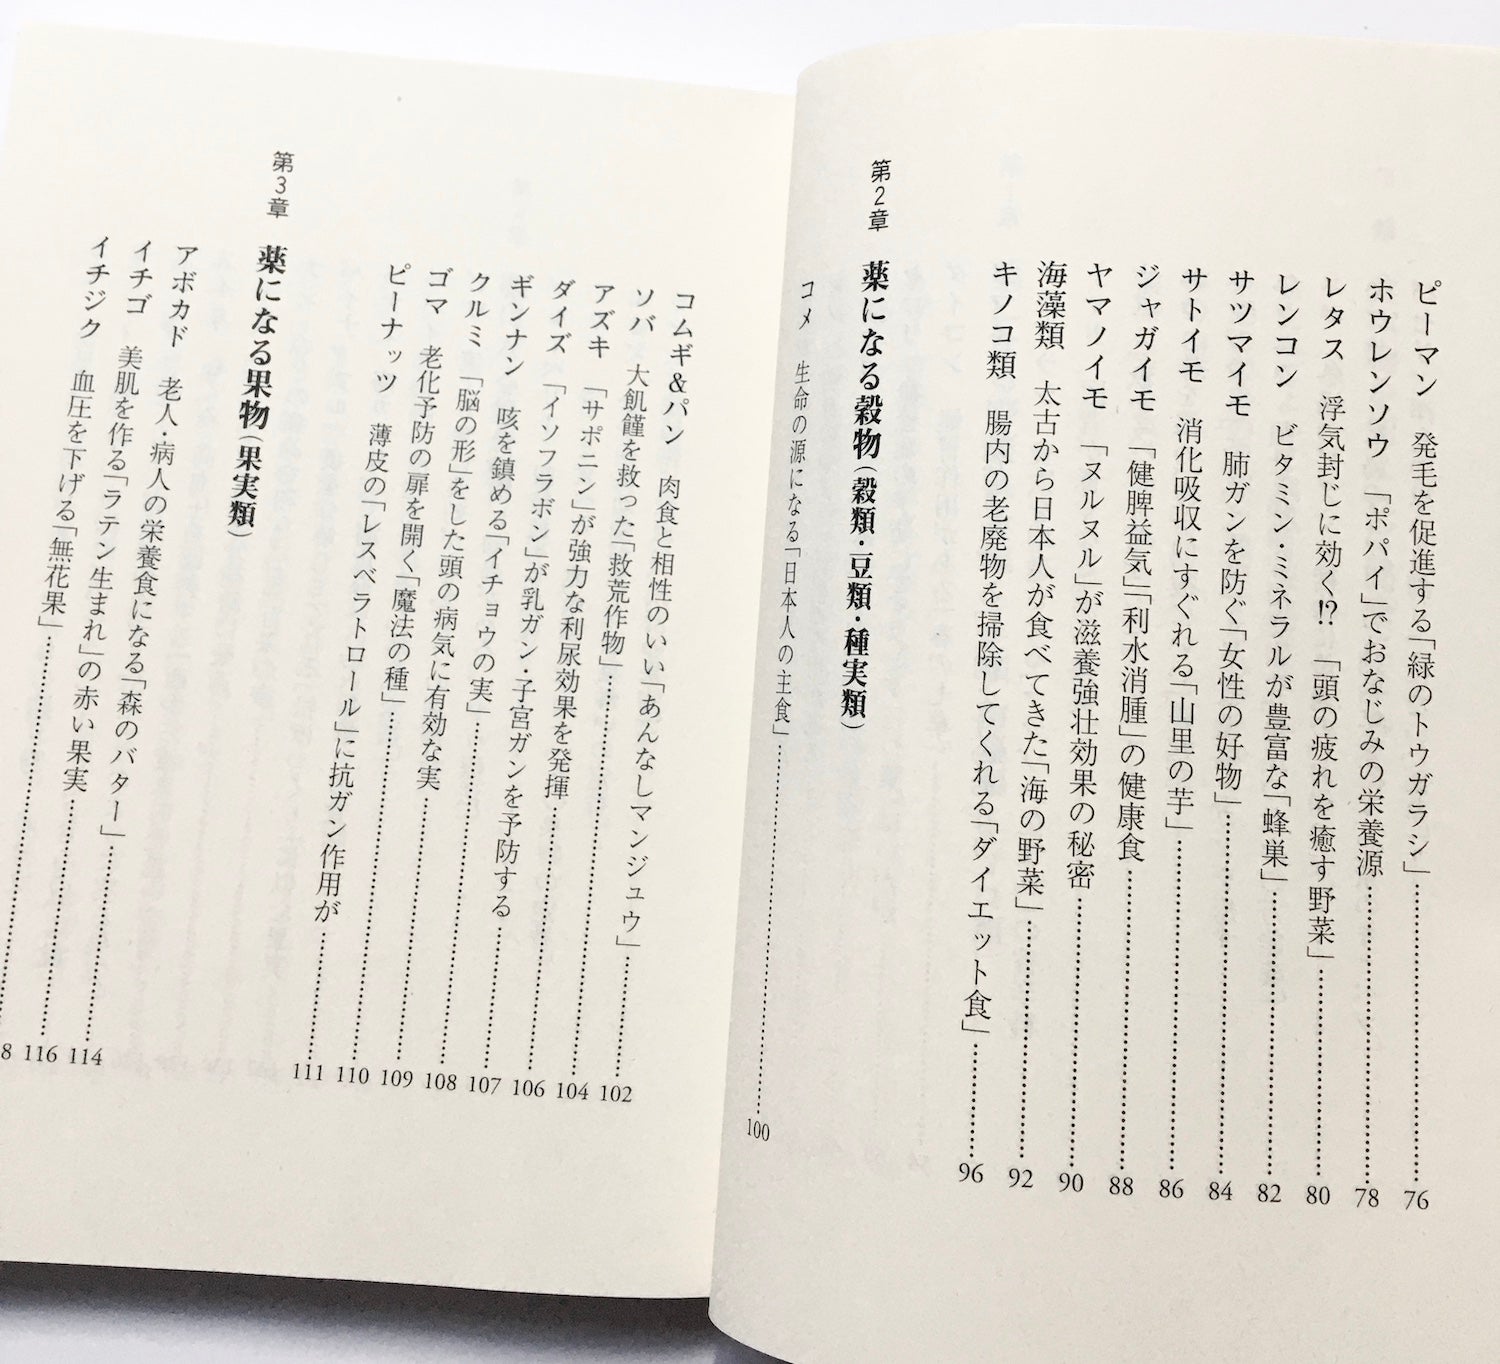 ピーマン 発毛を促進する「緑のトウガラシ」……76
ホウレンソウ 「ポパイ」でおなじみの栄養源……78
レタス 浮気封じに効く!? 「頭の疲れを癒す野菜」……80
レンコン ビタミン・ミネラルが豊富な「蜂巣」……82
サツマイモ 肺ガンを防ぐ「女性の好物」……84
サトイモ 消化吸収にすぐれる「山里の芋」……86
ジャガイモ 「健脾益気」「利水消腫」の健康食……88
ヤマノイモ 「ヌルヌル」が滋養強壮効果の秘密……90
海藻類 太古から日本人が食べてきた「海の野菜」……92
キノコ類 腸内の老廃物を掃除してくれる「ダイエット食」……96
第2章 薬になる穀物(穀類・豆類・種実類)
コメ 生命の源になる「日本人の主食」……100
コムギ&パン 肉食と相性のいい「あんなしマンジュウ」……102
ソバ 大飢饉を救った「救荒作物」……104
アズキ 「サポニン」が強力な利尿効果を発揮……106
ダイズ 「イソフラボン」が乳ガン・子宮ガンを予防する……107
ギンナン 咳を鎮める「イチョウの実」……108
クルミ 「脳の形」をした頭の病気に有効な実……109
ゴマ 老化予防の扉を開く「魔法の種」……110
ピーナッツ 薄皮の「レスベラトロール」に抗ガン作用が……111
第3章 薬になる果物(果実類)
アボカド 老人・病人の栄養食になる「森のバター」……114
イチゴ 美肌を作る「ラテン生まれ」の赤い果実……116
イチジク 血圧を下げる「無花果」……8